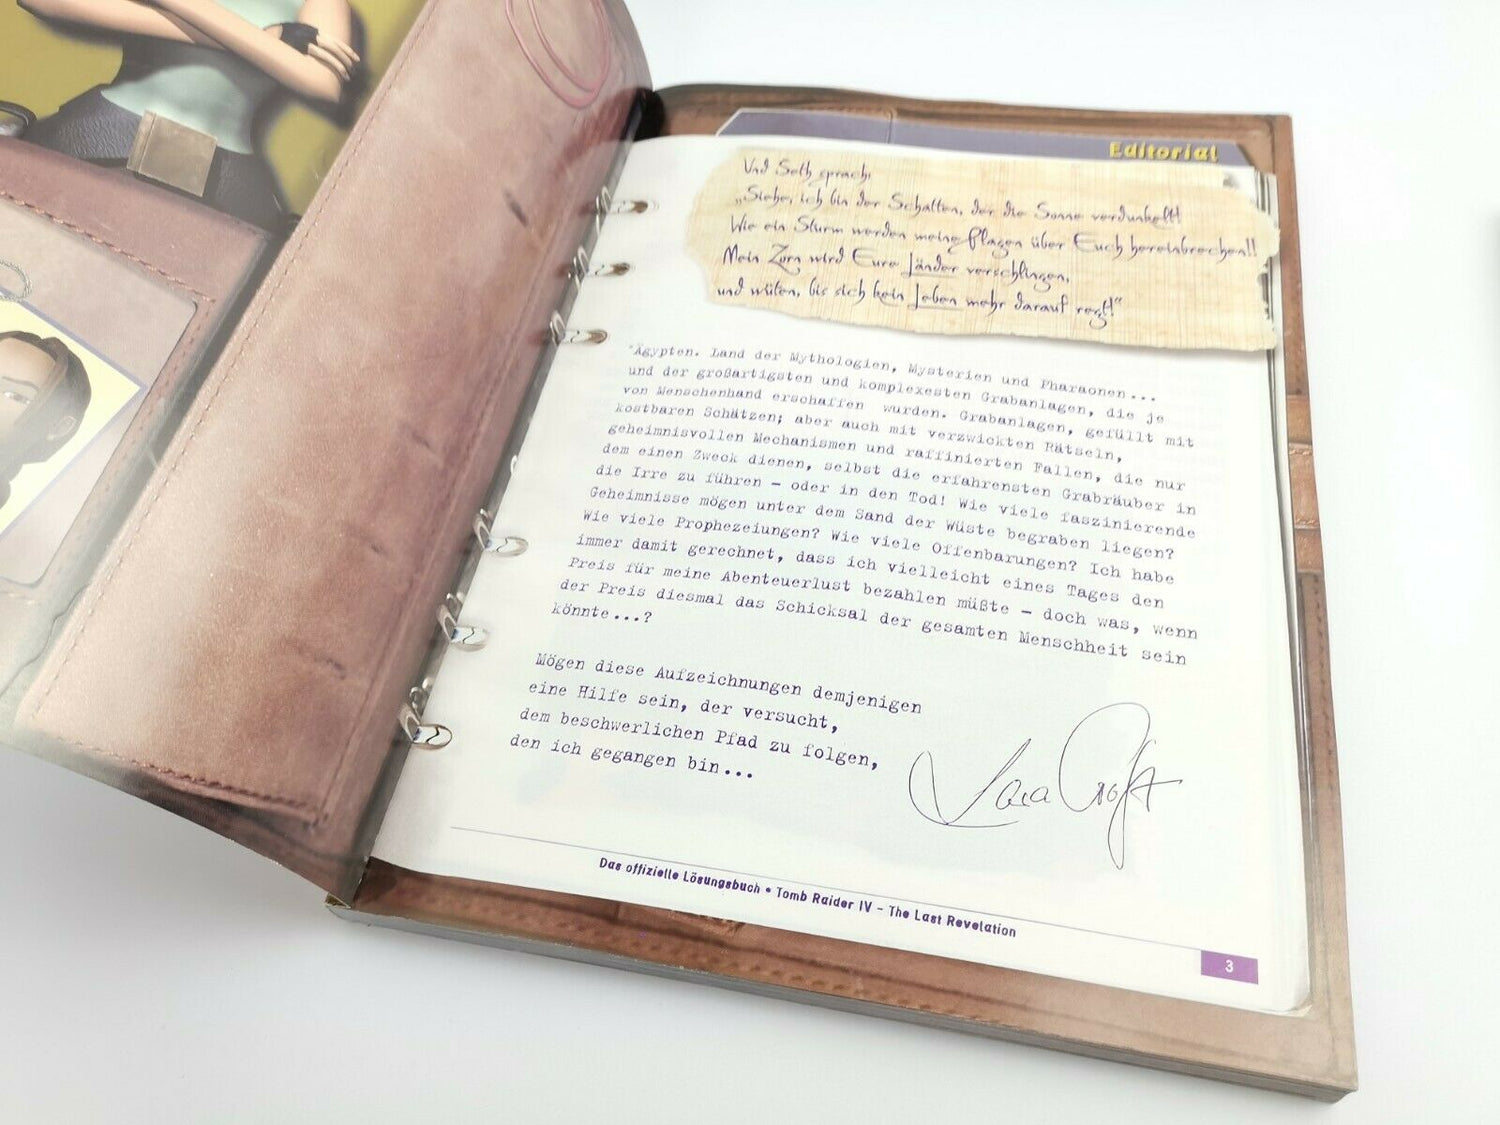 Editorial
Und Seth sprach:
„Siehe, ich bin der Schatten, der die Sonne verdunkelt!
Wie ein Sturm werden meine Plagen über Euch hereinbrechen!!
Mein Zorn wird Eure Länder verschlingen,
und wüten, bis sich kein Leben mehr darauf regt!“
"Ägypten. Land der Mythologien, Mysterien und Pharaonen...
und der großartigsten und komplexesten Grabanlagen, die je
von Menschenhand erschaffen wurden. Grabanlagen, gefüllt mit
kostbaren Schätzen; aber auch mit verzwickten Rätseln,
geheimnisvollen Mechanismen und raffinierten Fallen, die nur
dem einen Zweck dienen, selbst die erfahrensten Grabräuber in
die Irre zu führen - oder in den Tod! Wie viele faszinierende
Geheimnisse mögen unter dem Sand der Wüste begraben liegen?
Wie viele Prophezeiungen? Wie viele Offenbarungen? Ich habe
immer damit gerechnet, dass ich vielleicht eines Tages den
Preis für meine Abenteuerlust bezahlen müßte - doch was, wenn
der Preis diesmal das Schicksal der gesamten Menschheit sein
könnte...?
Mögen diese Aufzeichnungen demjenigen
eine Hilfe sein, der versucht,
dem beschwerlichen Pfad zu folgen,
den ich gegangen bin...
Lara Croft
Das offizielle Lösungsbuch • Tomb Raider IV – The Last Revelation
3